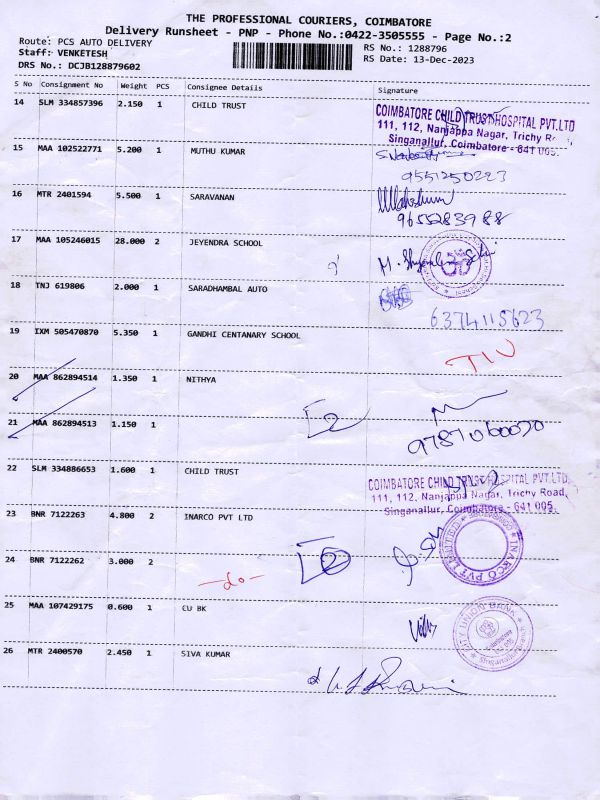 THE PROFESSIONAL COURIERS, COIMBATORE
Delivery Runsheet - PNP - Phone No.:0422-3505555 - Page No.:2
Route: PCS AUTO DELIVERY
RS No.: 1288796
Staff: VENKETESH
RS Date: 13-Dec-2023
DRS No.: DCJB128879602
S No Consignment No Weight PCS Consignee Details Signature
14 SLM 334857396 2.150 1 CHILD TRUST
COIMBATORE CHILD TRUST HOSPITAL PVT.LTD
111, 112, Nanjappa Nagar, Trichy Road,
Singanallur, Coimbatore - 641 005.
15 MAA 102522771 5.200 1 MUTHU KUMAR
9551250223
16 MTR 2401594 5.500 1 SARAVANAN
9655283988
17 MAA 105246015 28.000 2 JEYENDRA SCHOOL
18 TNJ 619806 2.000 1 SARADHAMBAL AUTO
6374115623
19 IXM 505470870 5.350 1 GANDHI CENTANARY SCHOOL
20 MAA 862894514 1.350 1 NITHYA
2
21 MAA 862894513 1.150 1
9787060070
22 SLM 334886653 1.600 1 CHILD TRUST
COIMBATORE CHILD TRUST HOSPITAL PVT.LTD.
111, 112, Nanjappa Nagar, Trichy Road,
Singanallur, Coimbatore - 641 005.
23 BNR 7122263 4.800 2 INARCO PVT LTD
INARCO PVT LIMITED
24 BNR 7122262 3.000 2
-do-
2
25 MAA 107429175 0.600 1 CU BK
CITY UNION BANK
26 MTR 2400570 2.450 1 SIVA KUMAR